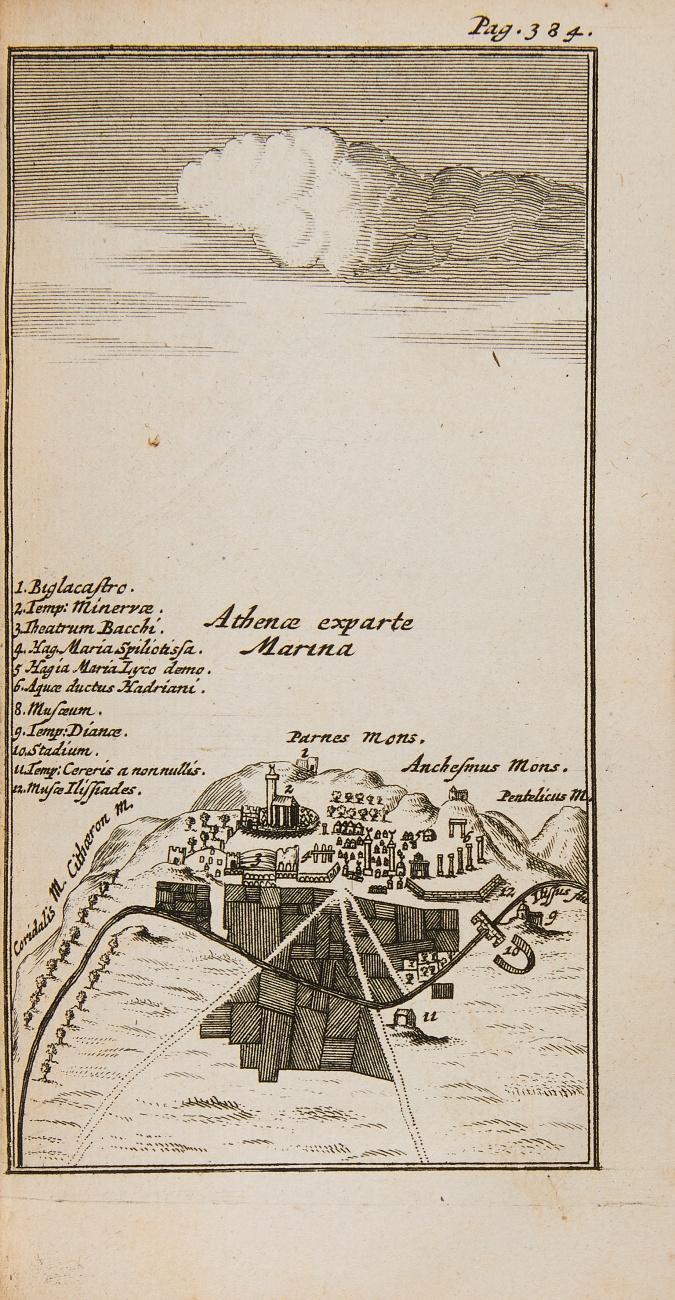 Pag. 384.
1. Biglacastro.
2. Temp: Minervæ.
3. Theatrum Bacchi.
4. Hag. Maria Spiliotissa.
5 Hagia Maria Lyco demo.
6. Aquæ ductus Hadriani.
8. Musæum.
9. Temp: Dianæ.
10. Stadium.
11. Temp: Cereris a nonnullis.
12. Musæ Ilissiades.
Athenæ ex parte
Marina
Parnes Mons.
Anchesmus Mons.
Pentelicus M.
Coridalis M. Cithæron M.
1
2
3
4
5
6
12
Ilysus flu
9
10
11